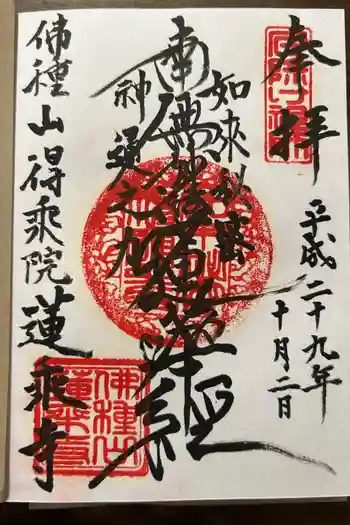 奉拝
平成二十九年
十月二日
如来秘密
南無妙法蓮華経
神通之力
佛種山得乗院蓮乗寺
佛種山
蓮乗寺